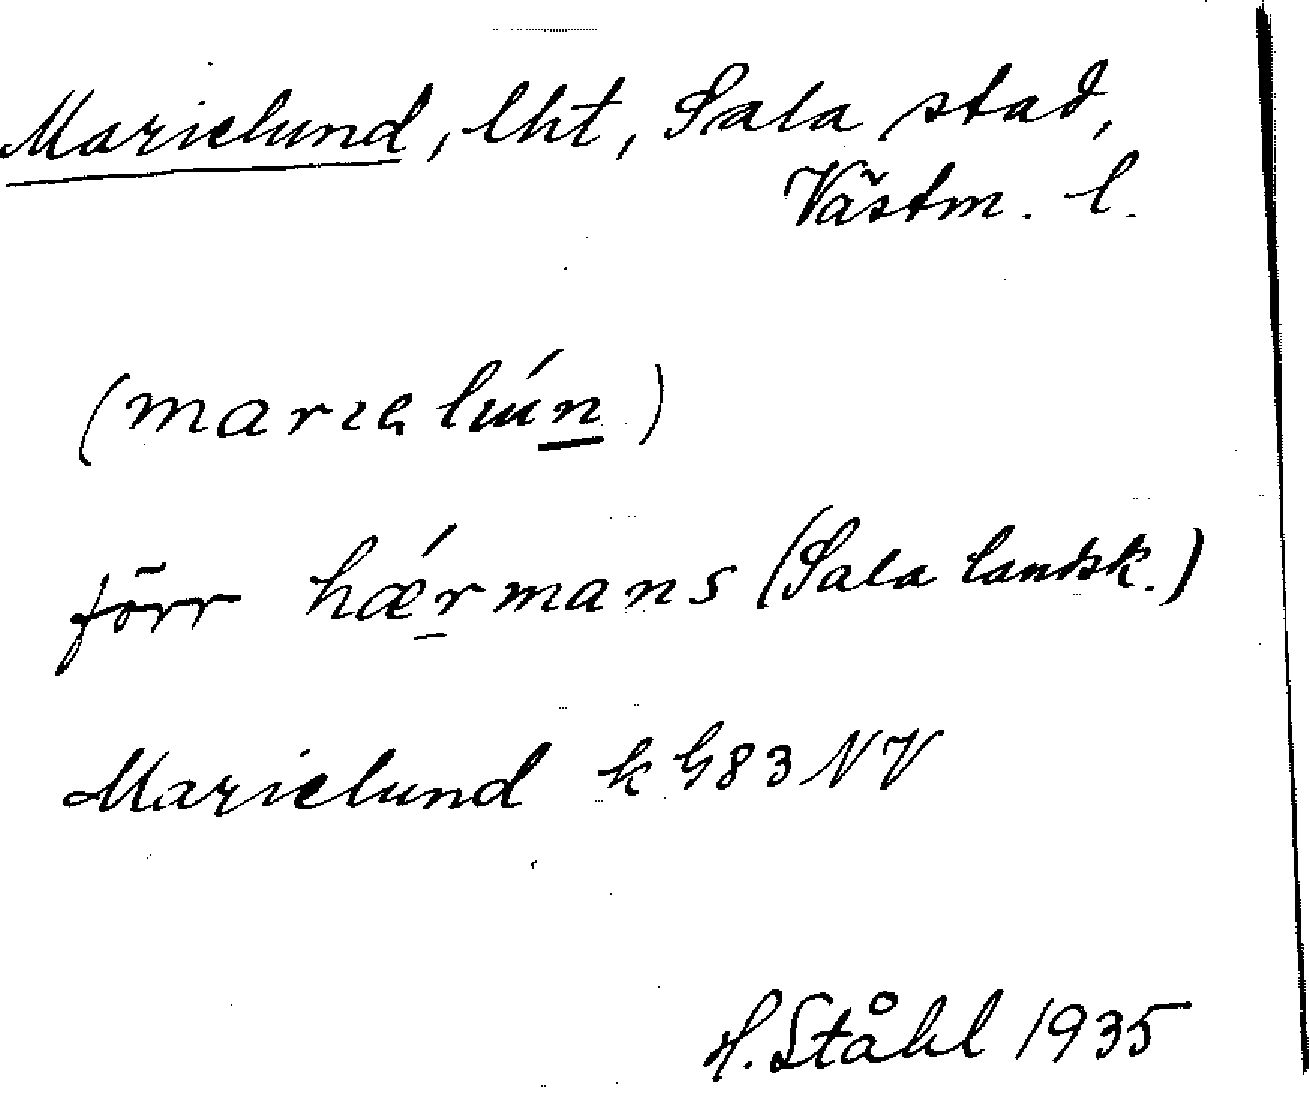 Marielund, lht, Sala stad,
Västm. l.
(marıe luń)
förr hǽrmans (Sala landsk.)
Marielund k G83 NV
H. Ståhl 1935